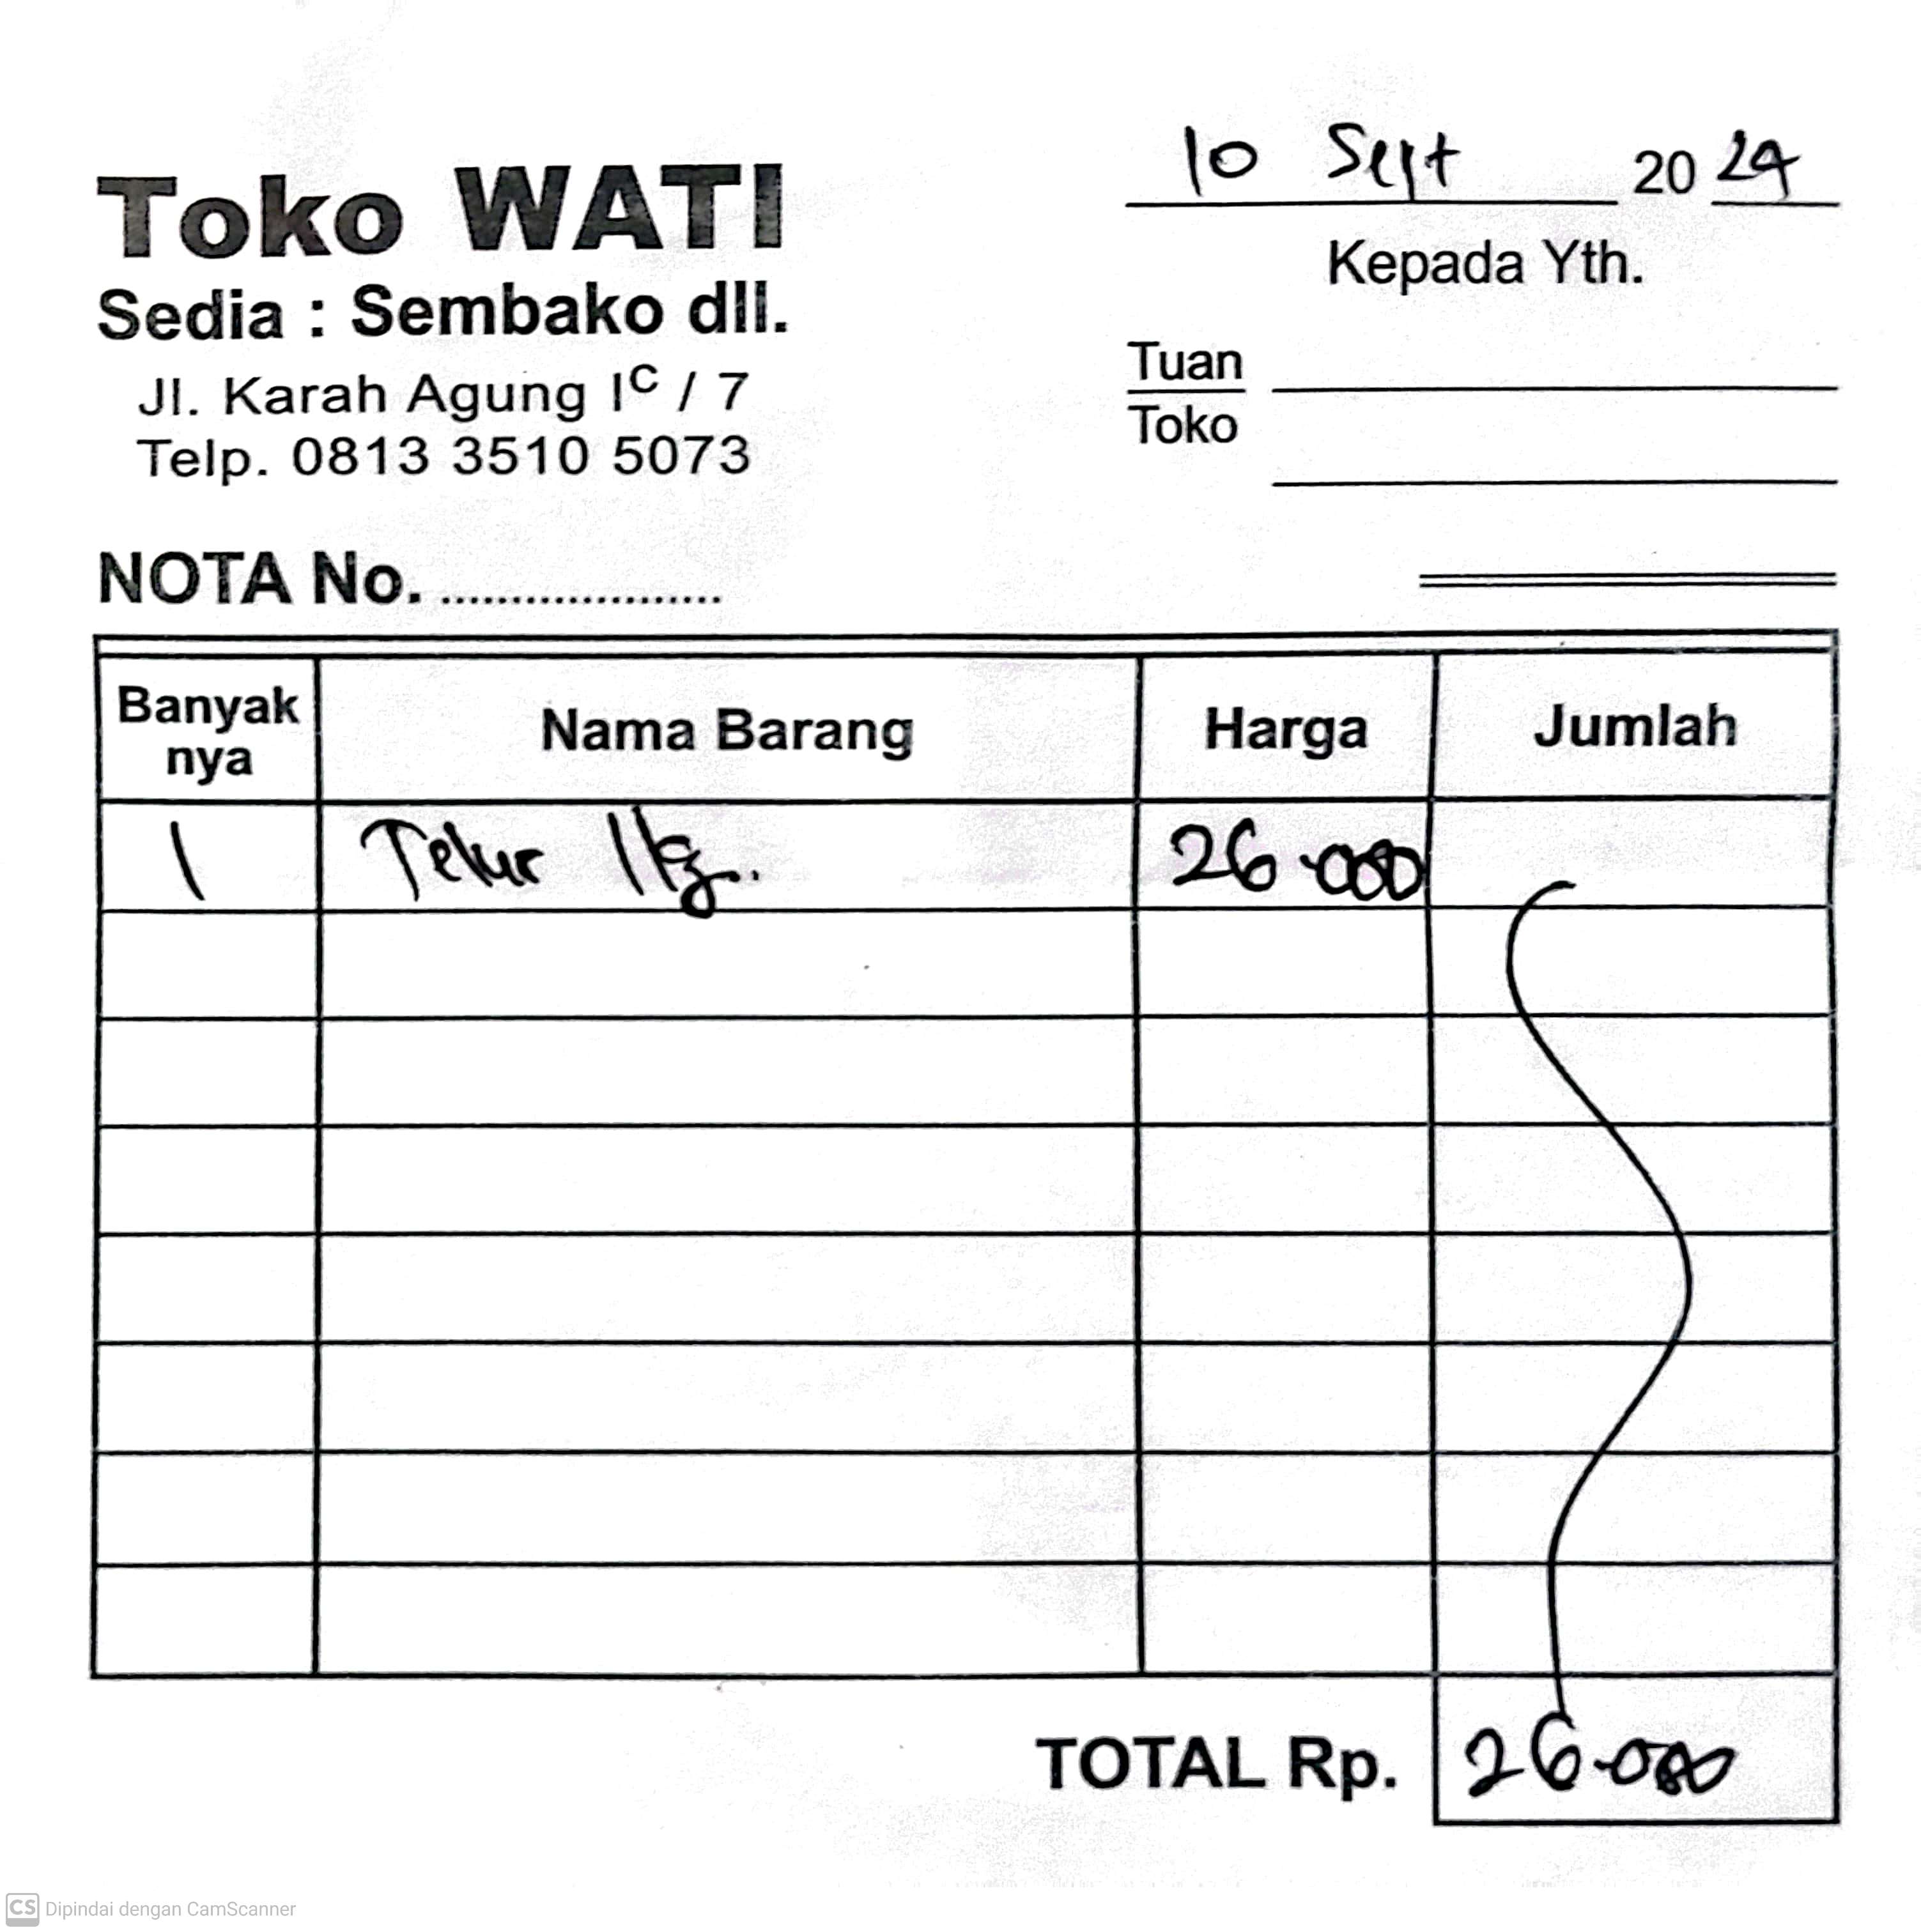 10 Sept 2024
Toko WATI
Sedia : Sembako dll.
Jl. Karah Agung I C / 7
Telp. 0813 3510 5073
Kepada Yth.
Tuan
Toko
NOTA No. ....................
Banyak nya Nama Barang Harga Jumlah
1 Telur 1kg.. 26.000
TOTAL Rp. 26.000
CS Dipindai dengan CamScanner